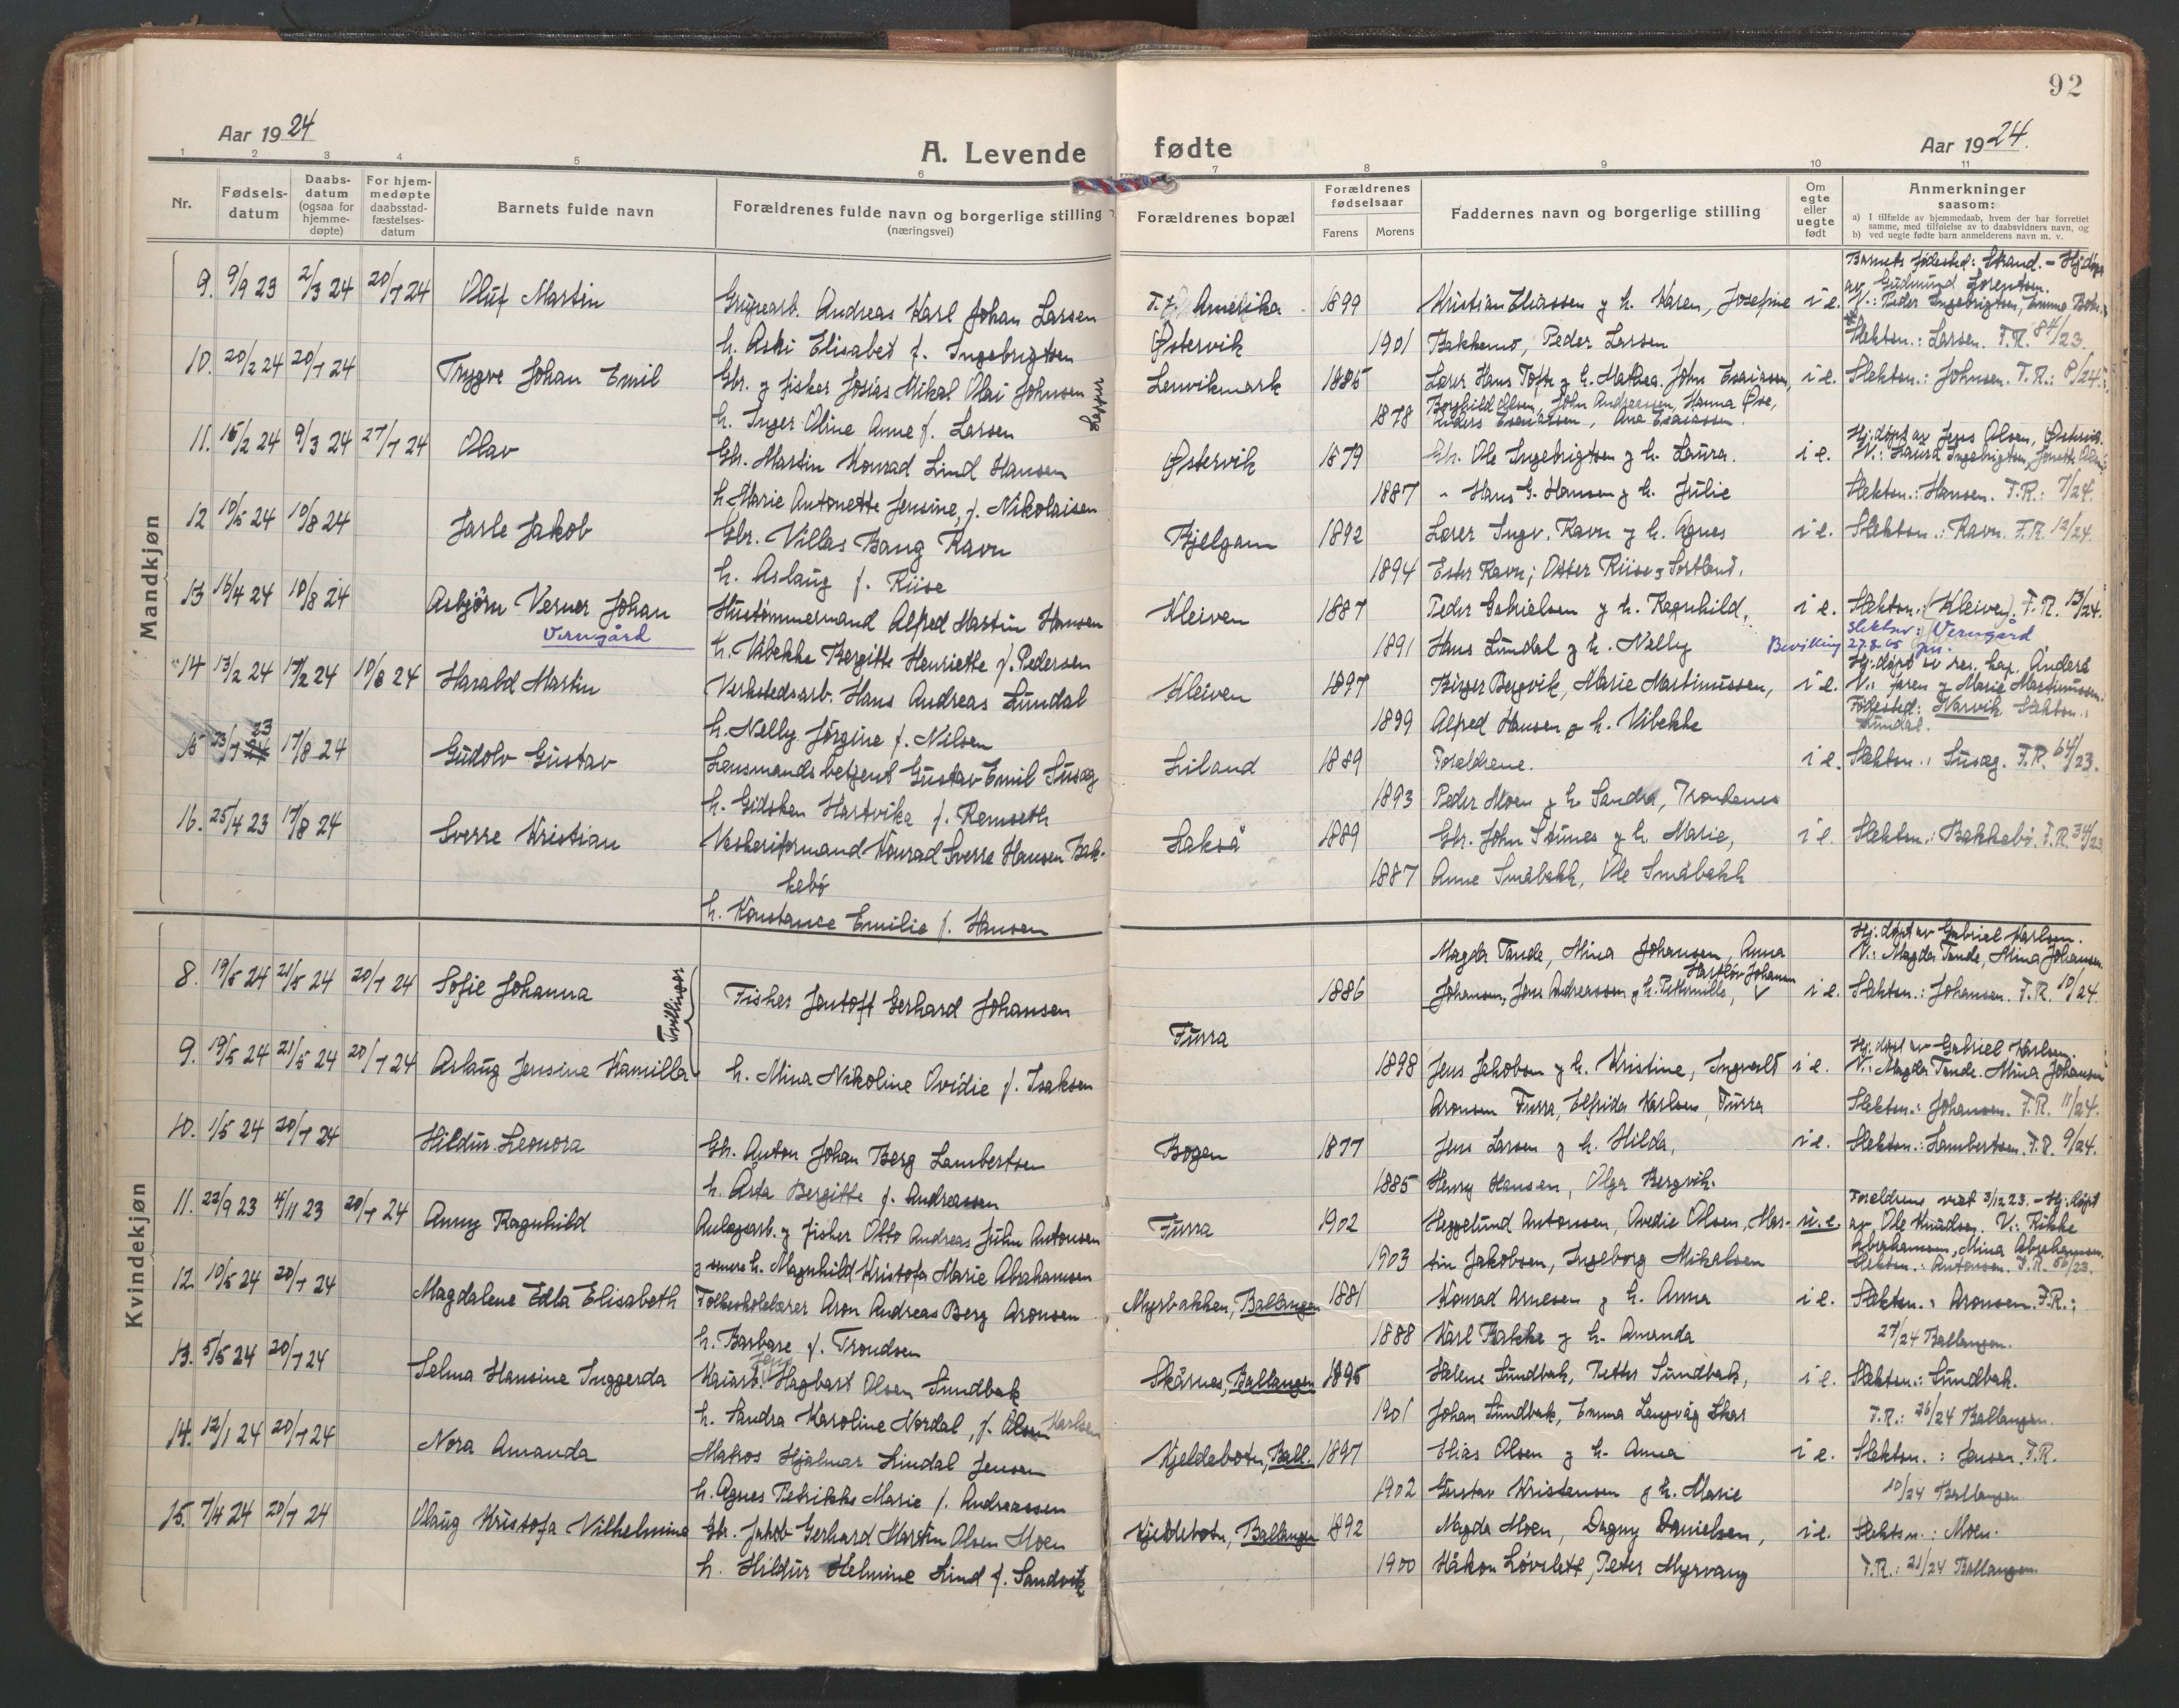 92
Aar 1924
A. Levende fødte
Aar 1924.
1 2 3 4 5 6 7 8 9 10 11
Nr.
Fødsels-
datum
Daabs-
datum
(ogsaa for
hjemme-
døpte)
For hjem-
medøpte
daabsstad-
fæstelses-
datum
Barnets fulde navn
Forældrenes fulde navn og borgerlige stilling
(næringsvei)
Forældrenes bopæl
Forældrenes
fødselsaar
Farens Morens
Faddernes navn og borgerlige stilling
Om
egte
eller
uegte
født
Anmerkninger
saasom:
a) I tilfælde av hjemmedaab, hvem der har forrettet
samme, med tilføielse av to daabsvidners navn, og
b) ved uegte fødte barn anmelderens navn m. v.
Mandkjøn
Barnets fødested: Strand. - Hj.døpt
av Gudmund Lorentsen.
9. 9/9 23 2/3 24 20/7 24 Oluf Martin Grubearb. Andreas Karl Johan Larsen Amerika 1899 Kristian Eliassen g h. Karen, Josefine i e. V.: Peder Ingebrigtsen, Emma
h. Aski Elisabet f. Ingebrigtsen Østervik 1901 Bakkemo, Peder Larsen Slektsn.: Larsen. F.R. 84/23.
10. 20/2 24 20/7 24 Trygve Johan Emil Gbr. g fisker Josias Mikal Olai Johnsen Lenvikmark 1885 Lærer Hans Tofte g h. Mathea. John Esaiassen, i e. Slektsn.: Johnsen. F.R.: 8/24.
h. Inger Oline Anne f. Larsen 1878 Borghild Olsen, John Andreassen, Hanna Øse,
Anders Esaiassen, Ane Esaiassen.
Hj.døpt av Jens Olsen, Østervik.
11. 15/2 24 9/3 24 27/7 24 Olav Gbr. Martin Konrad Lind Hansen Østervik 1879 Gbr. Ole Ingebrigtsen g h. Laura. i e. V.: Laura Ingebrigtsen,
h. Marie Antonette Jensine, f. Nikolaisen 1887 " Hans G. Hansen g h. Julie Slektsn.: Hansen. F.R.: 7/24.
12 10/5 24 10/8 24 Jarle Jakob Gbr. Villas Bang Ravn Bjelgam 1892 Lærer Ingv. Ravn g h. Agnes i e. Slektsn.: Ravn. F.R. 12/24.
h. Aslaug f. Riise 1894 Ester Ravn; Osser Riise, Sortland.
13 15/4 24 10/8 24 Asbjørn Verner Johan Hustømmermand Alfred Martin Hansen Kleiven 1887 Peder Gabrielsen g h. Ragnhild, i e. Slektsn.: (Kleiven). F.R. 13/24.
Verngård h. Vibekke Bergitte Henriette f. Pedersen 1891 Hans Lundal g h. Nelly Bevilling Slektsnv: Verngård
Hj.døpt av res. kap. Anders
14 13/2 24 17/2 24 10/8 24 Harald Martin Verkstedsarb. Hans Andreas Lundal Kleiven 1897 Birger Bergvik, Marie Martinussen, i e. V.: faren g Marie Martinussen.
h. Nelly Jörgine f. Nilsen 1899 Alfred Hansen g h. Vibekke Fødested: Narvik. Slektsn.:
Lundal.
15 23/7 23 17/8 24 Gudolv Gustav Lensmandsbetjent Gustav Emil Susæg Liland 1889 Forældrene. i e. Slektsn.: Susæg. F.R. 64/23.
h. Gidsken Hartvika f. Remseth 1893 Peder Moen g h. Sandra, Trondenes
16. 25/4 23 17/8 24 Sverre Kristian Vaskeriformand Konrad Sverre Hansen Bak- Lakså 1889 Gbr. John Stunes g h. Marie, i e. Slektsn.: Bakkebø. F.R. 34/23
kebø 1887 Anne Småbakk, Ole Småbakk
h. Konstance Emilie f. Hansen
Kvindekjøn
Magda Tande, Mina Johansen, Anna Hj.døpt av Gabriel Karlsen.
Johansen V.: Magda Tande, Mina Johansen.
8. 19/5 24 21/5 24 20/7 24 Sofie Johanna Tvillinger Fisker Jentoft Gerhard Johansen 1886 Johansen, Jens Andreassen g h. Petternille, i e. Slektsn.: Johansen. F.R. 10/24.
Furra
Hj.døpt av Gabriel Karlsen.
9. 19/5 24 21/5 24 20/7 24 Aslaug Jensine Kamilla h. Mina Nikoline Ovidie f. Isaksen 1898 Jens Jakobsen g h. Kristine, Ingvald i e. V.: Magda Tande. Mina Johansen
Aronsen Furra, Elfrida Karlsen, Furra Slektsn.: Johansen. F.R. 11/24.
10. 1/5 24 20/7 24 Hildur Leonora Gbr. Anton Johan Berg Lambertsen Bogen 1877 Jens Larsen g h. Hilda, i e. Slektsn.: Lambertsen. F.R. 9/24.
h. Asta Bergitte f. Andreassen 1885 Henry Hansen, Olga Bergvik.
Foreldrene viet 3/12 23. - Hj.døpt
11. 22/9 23 4/11 23 20/7 24 Anny Ragnhild Anlægsarb. g fisker Otto Andreas Juhn Antonsen Furra 1902 Heggelund Antonsen, Ovedie Olsen, Mar- u. e. av Ole Knudsen. V.: Rikke
g senere h. Magnhild Kristofa Marie Abrahamsen 1903 tin Jakobsen, Ingeborg Mikalsen Abrahamsen, Mina Abrahamsen.
Slektsn.: Antonsen. F.R. 86/23.
12. 10/5 24 20/7 24 Magdalene Edla Elisabeth Folkeskolelærer Aron Andreas Berg Aronsen Myrbakken, Ballangen 1881 Konrad Arnesen g h. Anna i e. Slektsn.: Aronsen. F.R.:
h. Barbare f. Trondsen 1888 Karl Bakke g h. Amanda 27/24 Ballangen.
13. 5/5 24 20/7 24 Selma Hansine Inggerda Kaiarb. Jens Hagbart Olsen Sundbak Skårnes, Ballangen 1895 Helene Sundbak, Petter Sundbak, i e. Slektsn.: Sundbak.
h. Sandra Karoline Nordal, f. Olsen Karlsen 1901 Johan Sundbak, Emma Langvåg Skar F.R.: 26/24 Ballangen.
14. 12/1 24 20/7 24 Nora Amanda Matros Hjalmar Lindal Jensen Kjeldebotn, Ball. 1897 Elias Olsen g h. Anna i e. Slektsn.: Jensen. F.R.
h. Agnes Petrikke Marie f. Andreassen 1902 Gustav Kristensen g h. Marie 10/24 Ballangen
15. 7/4 24 20/7 24 Olaug Kristofa Vilhelmine Gbr. Jakob Gerhard Martin Olsen Moen Kjeldebotn, Ballangen 1892 Magda Moen, Dagny Danielsen, i e. Slektsn.: Moen.
h. Hildur Helmine Lind f. Sandvik 1900 Håkon Løvslett, Peter Myrvang F.R.: 21/24 Ballangen.